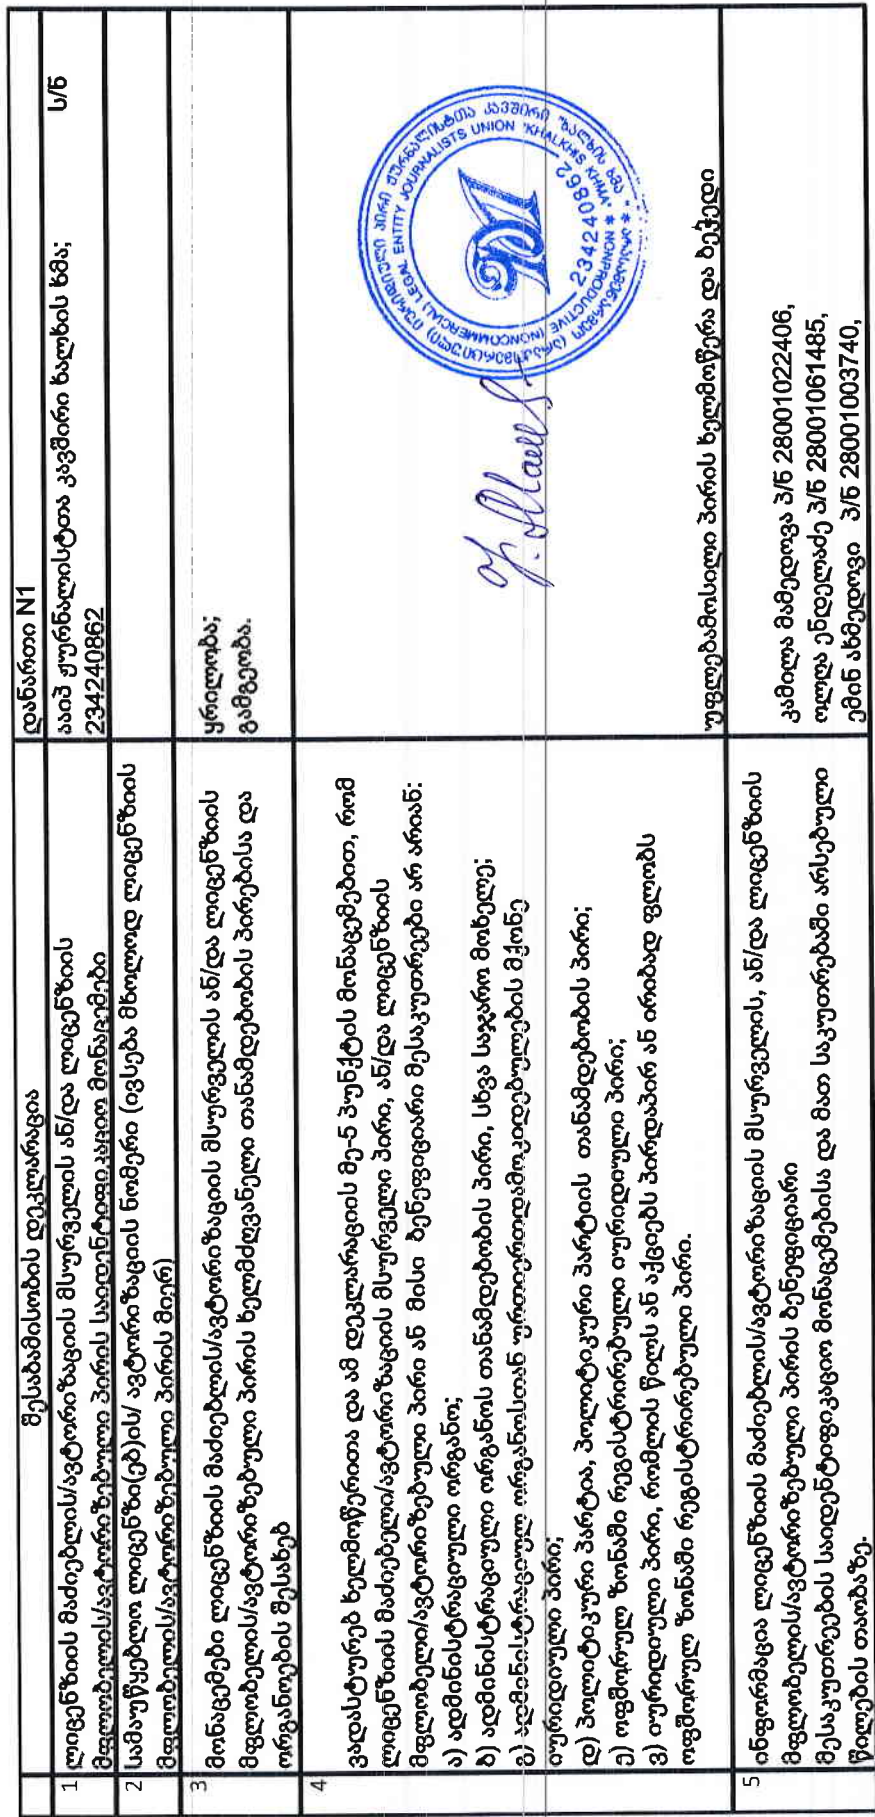 შესაბამისობის დეკლარაცია
დანართი N1
1
ლიცენზიის მაძიებლის/ავტორიზაციის მსურველის ან/და ლიცენზიის
მფლობელის/ავტორიზებული პირის საიდენტიფიკაციო მონაცემები
ააიპ ჟურნალისტთა კავშირი ხალხის ხმა; ს/ნ
234240862
2
სამაუწყებლო ლიცენზი(ებ)ის/ ავტორიზაციის ნომერი (ივსება მხოლოდ ლიცენზიის
მფლობელის/ავტორიზებული პირის მიერ)
3
მონაცემები ლიცენზიის მაძიებლის/ავტორიზაციის მსურველის ან/და ლიცენზიის
მფლობელის/ავტორიზებული პირის ხელმძღვანელი თანამდებობის პირებისა და
ორგანოების შესახებ
ყრილობა;
გამგეობა.
4
ვადასტურებ ხელმოწერითა და ამ დეკლარაციის მე-5 პუნქტის მონაცემებით, რომ
ლიცენზიის მაძიებელი/ავტორიზაციის მსურველი პირი, ან/და ლიცენზიის
მფლობელი/ავტორიზებული პირი ან მისი ბენეფიციარი მესაკუთრეები არ არიან:
ა) ადმინისტრაციული ორგანო;
ბ) ადმინისტრაციული ორგანოს თანამდებობის პირი, სხვა საჯარო მოხელე;
გ) ადმინისტრაციულ ორგანოსთან ურთიერთდამოკიდებულების მქონე
იურიდიული პირი;
დ) პოლიტიკური პარტია, პოლიტიკური პარტიის თანამდებობის პირი;
ე) ოფშორულ ზონაში რეგისტრირებული იურიდიული პირი;
ვ) იურიდიული პირი, რომლის წილს ან აქციებს პირდაპირ ან ირიბად ფლობს
ოფშორულ ზონაში რეგისტრირებული პირი.
(არაკომერციული) იურიდიული პირი ჟურნალისტთა კავშირი "ხალხის ხმა" * არასამეწარმეო
(NONCOMMERCIAL) LEGAL ENTITY JOURNALISTS UNION "KHALKHIS KHMA" * NONPRODUCTIVE
234240862
უფლებამოსილი პირის ხელმოწერა და ბეჭედი
5
ინფორმაცია ლიცენზიის მაძიებლის/ავტორიზაციის მსურველის, ან/და ლიცენზიის
მფლობელის/ავტორიზებული პირის ბენეფიციარი
მესაკუთრეების საიდენტიფიკაციო მონაცემებისა და მათ საკუთრებაში არსებული
წილების თაობაზე.
კამილა მამედოვა პ/ნ 28001022406,
ოლღა ენდელაძე პ/ნ 28001061485,
ემინ ახმედოვი პ/ნ 28001003740,